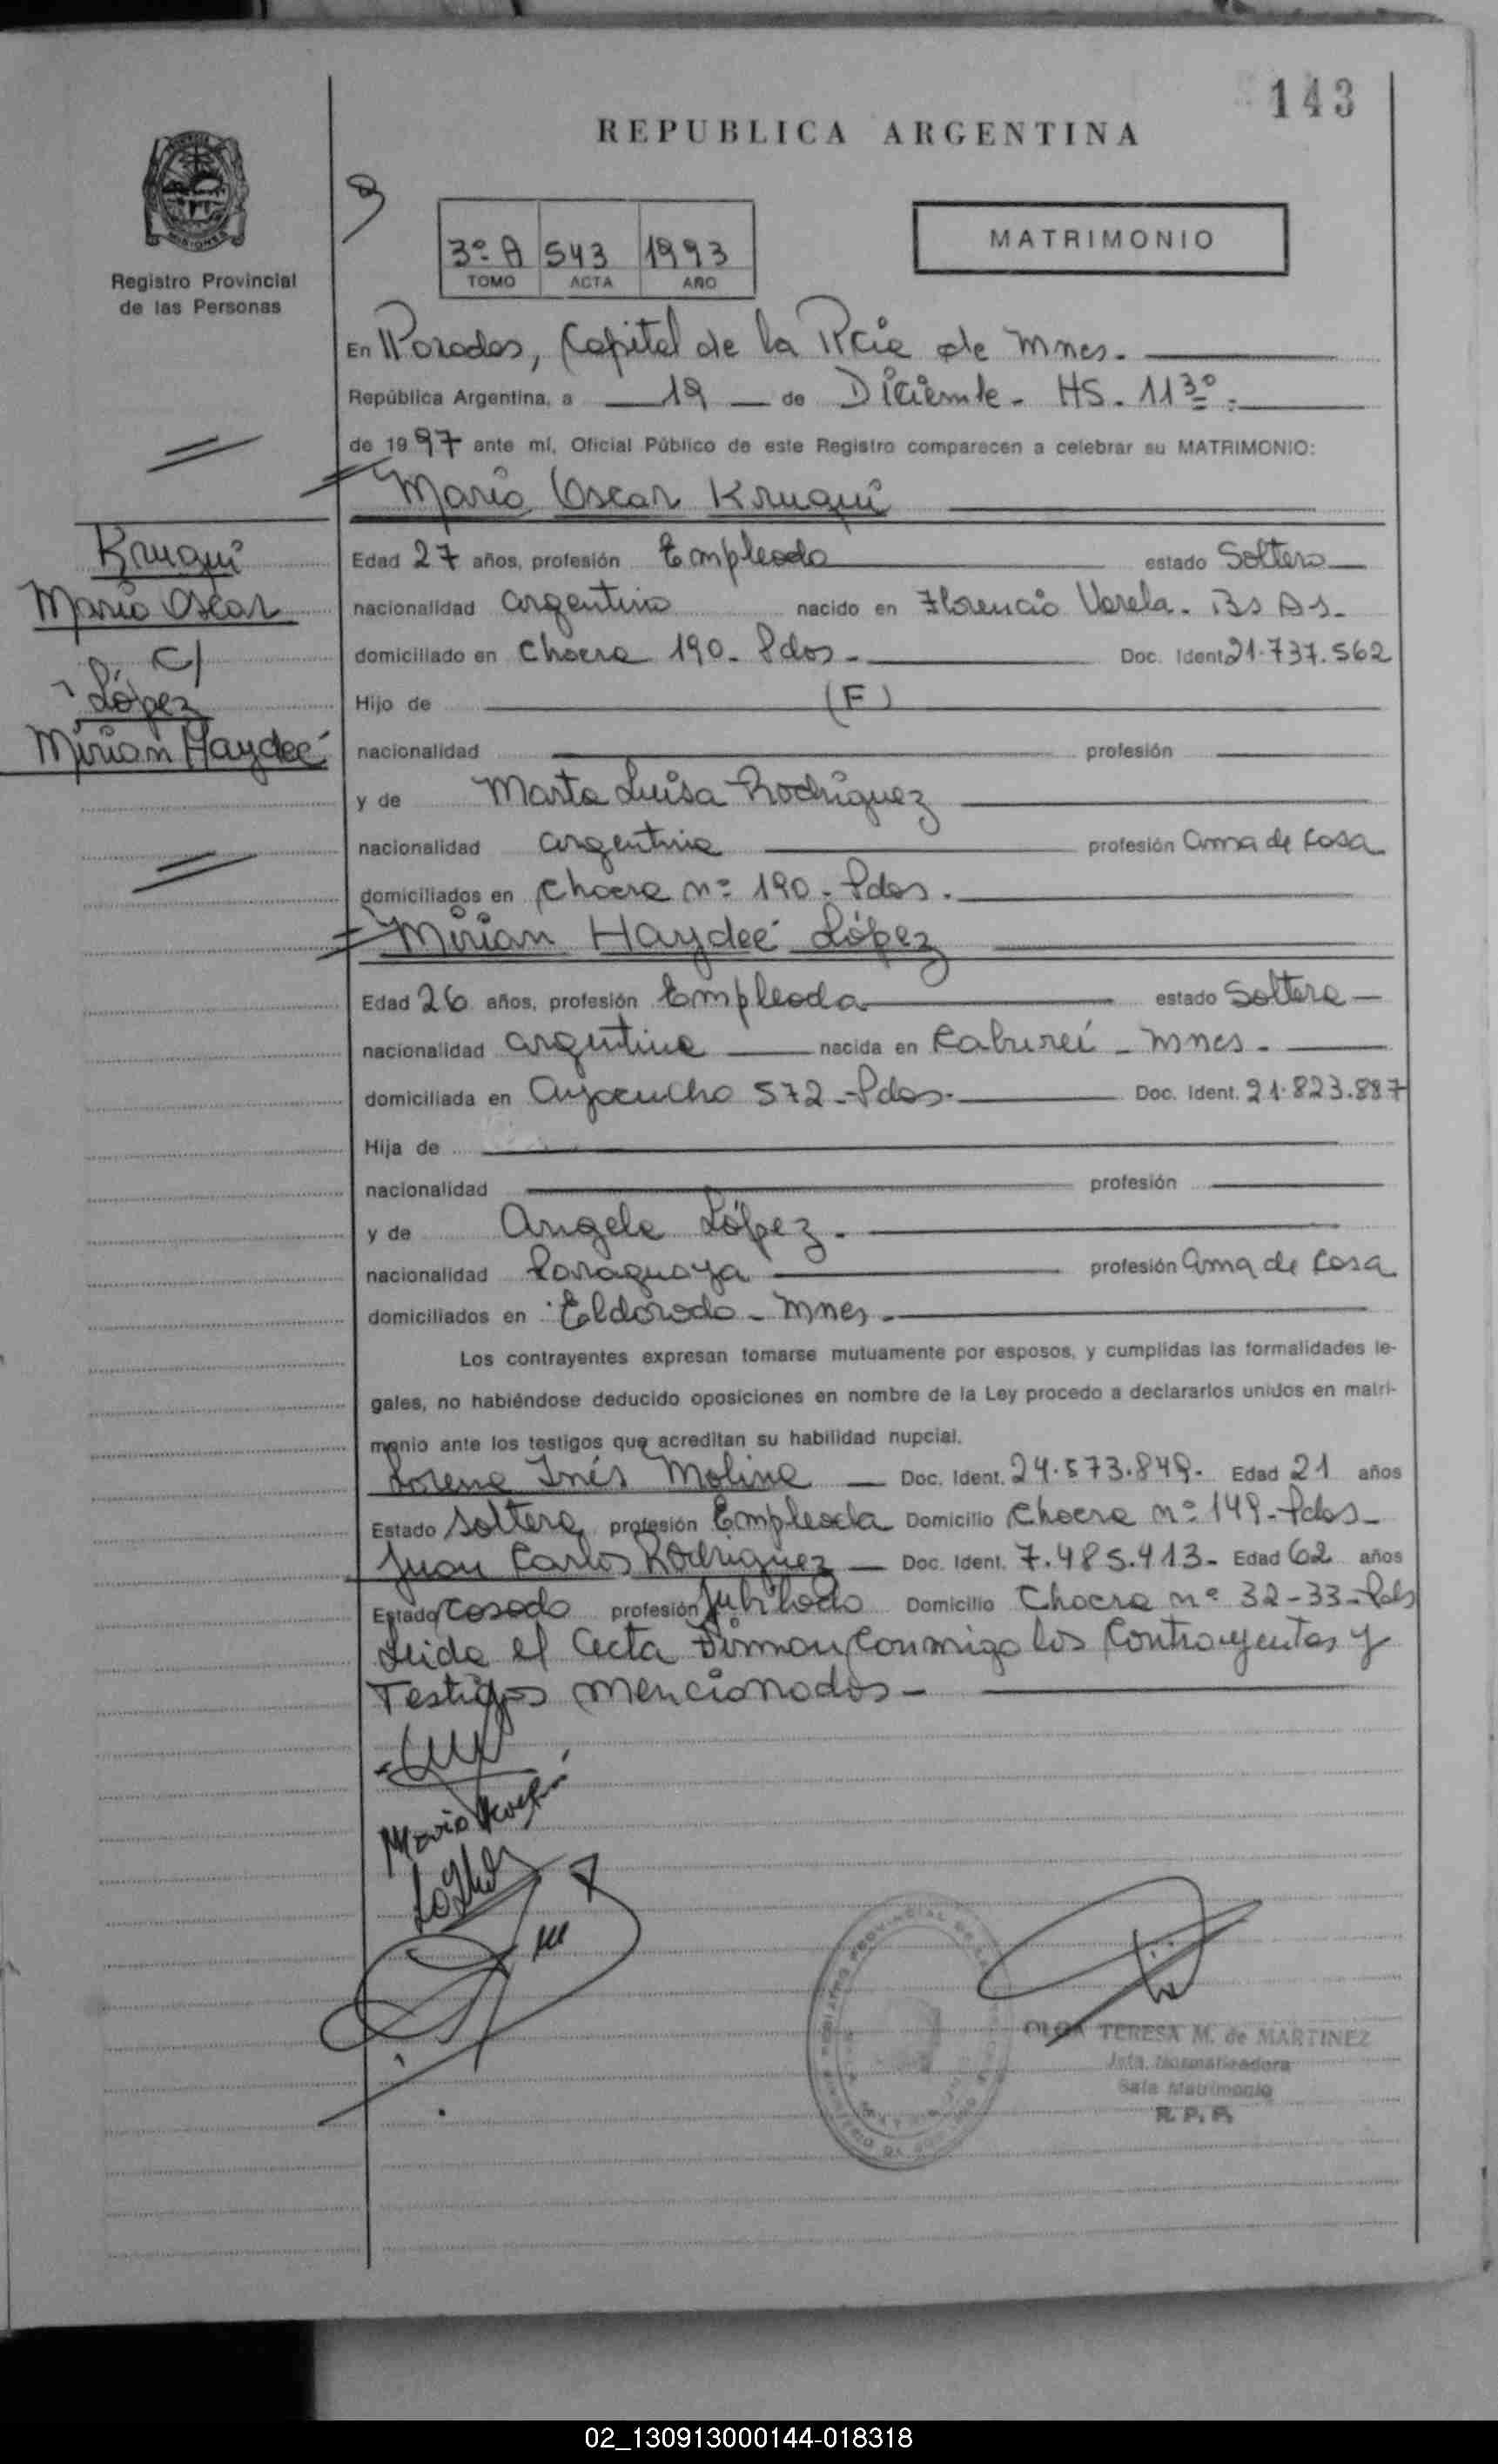 143
REPUBLICA ARGENTINA
MISIONES
Registro Provincial
de las Personas
3º A 543 1993
TOMO ACTA AÑO
MATRIMONIO
En Posadas, Capital de la Pcia de Mnes.
República Argentina, a 19 de Diciembre. HS. 11 30.
de 1997 ante mí, Oficial Público de este Registro comparecen a celebrar su MATRIMONIO:
Mario Oscar Kruqui
Kruqui
Mario Oscar
C/
López
Mirian Haydeé
Edad 27 años, profesión Empleado estado Soltero
nacionalidad argentino nacido en Florencio Varela. Bs As.
domiciliado en Chacra 190. Pdas. Doc. Ident. 21.737.562
Hijo de (F)
nacionalidad profesión
y de Marta Luisa Rodriguez
nacionalidad argentina profesión ama de casa
domiciliados en Chacra nº 190. Pdas.
Mirian Haydeé López
Edad 26 años, profesión Empleada estado Soltera
nacionalidad argentina nacida en Caburei - Mnes.
domiciliada en Ayacucho 572 - Pdas. Doc. Ident. 21.823.887
Hija de
nacionalidad profesión
y de Angela López.
nacionalidad Paraguaya profesión ama de casa
domiciliados en Eldorado - Mnes.
Los contrayentes expresan tomarse mutuamente por esposos, y cumplidas las formalidades le-
gales, no habiéndose deducido oposiciones en nombre de la Ley procedo a declararlos unidos en matri-
monio ante los testigos que acreditan su habilidad nupcial.
Lorena Inés Molina Doc. Ident. 24.573.849. Edad 21 años
Estado Soltera profesión Empleada Domicilio Chacra nº 149 - Pdas.
Juan Carlos Rodriguez Doc. Ident. 7.485.413. Edad 62 años
Estado Casado profesión Jubilado Domicilio Chacra nº 32-33 - Pdas
Leida el Acta Firman conmigo los Contrayentes y
Testigos mencionados.
OLGA TERESA M. de MARTINEZ
Jefa Normalizadora
Sala Matrimonio
R. P. P.
02_130913000144-018318